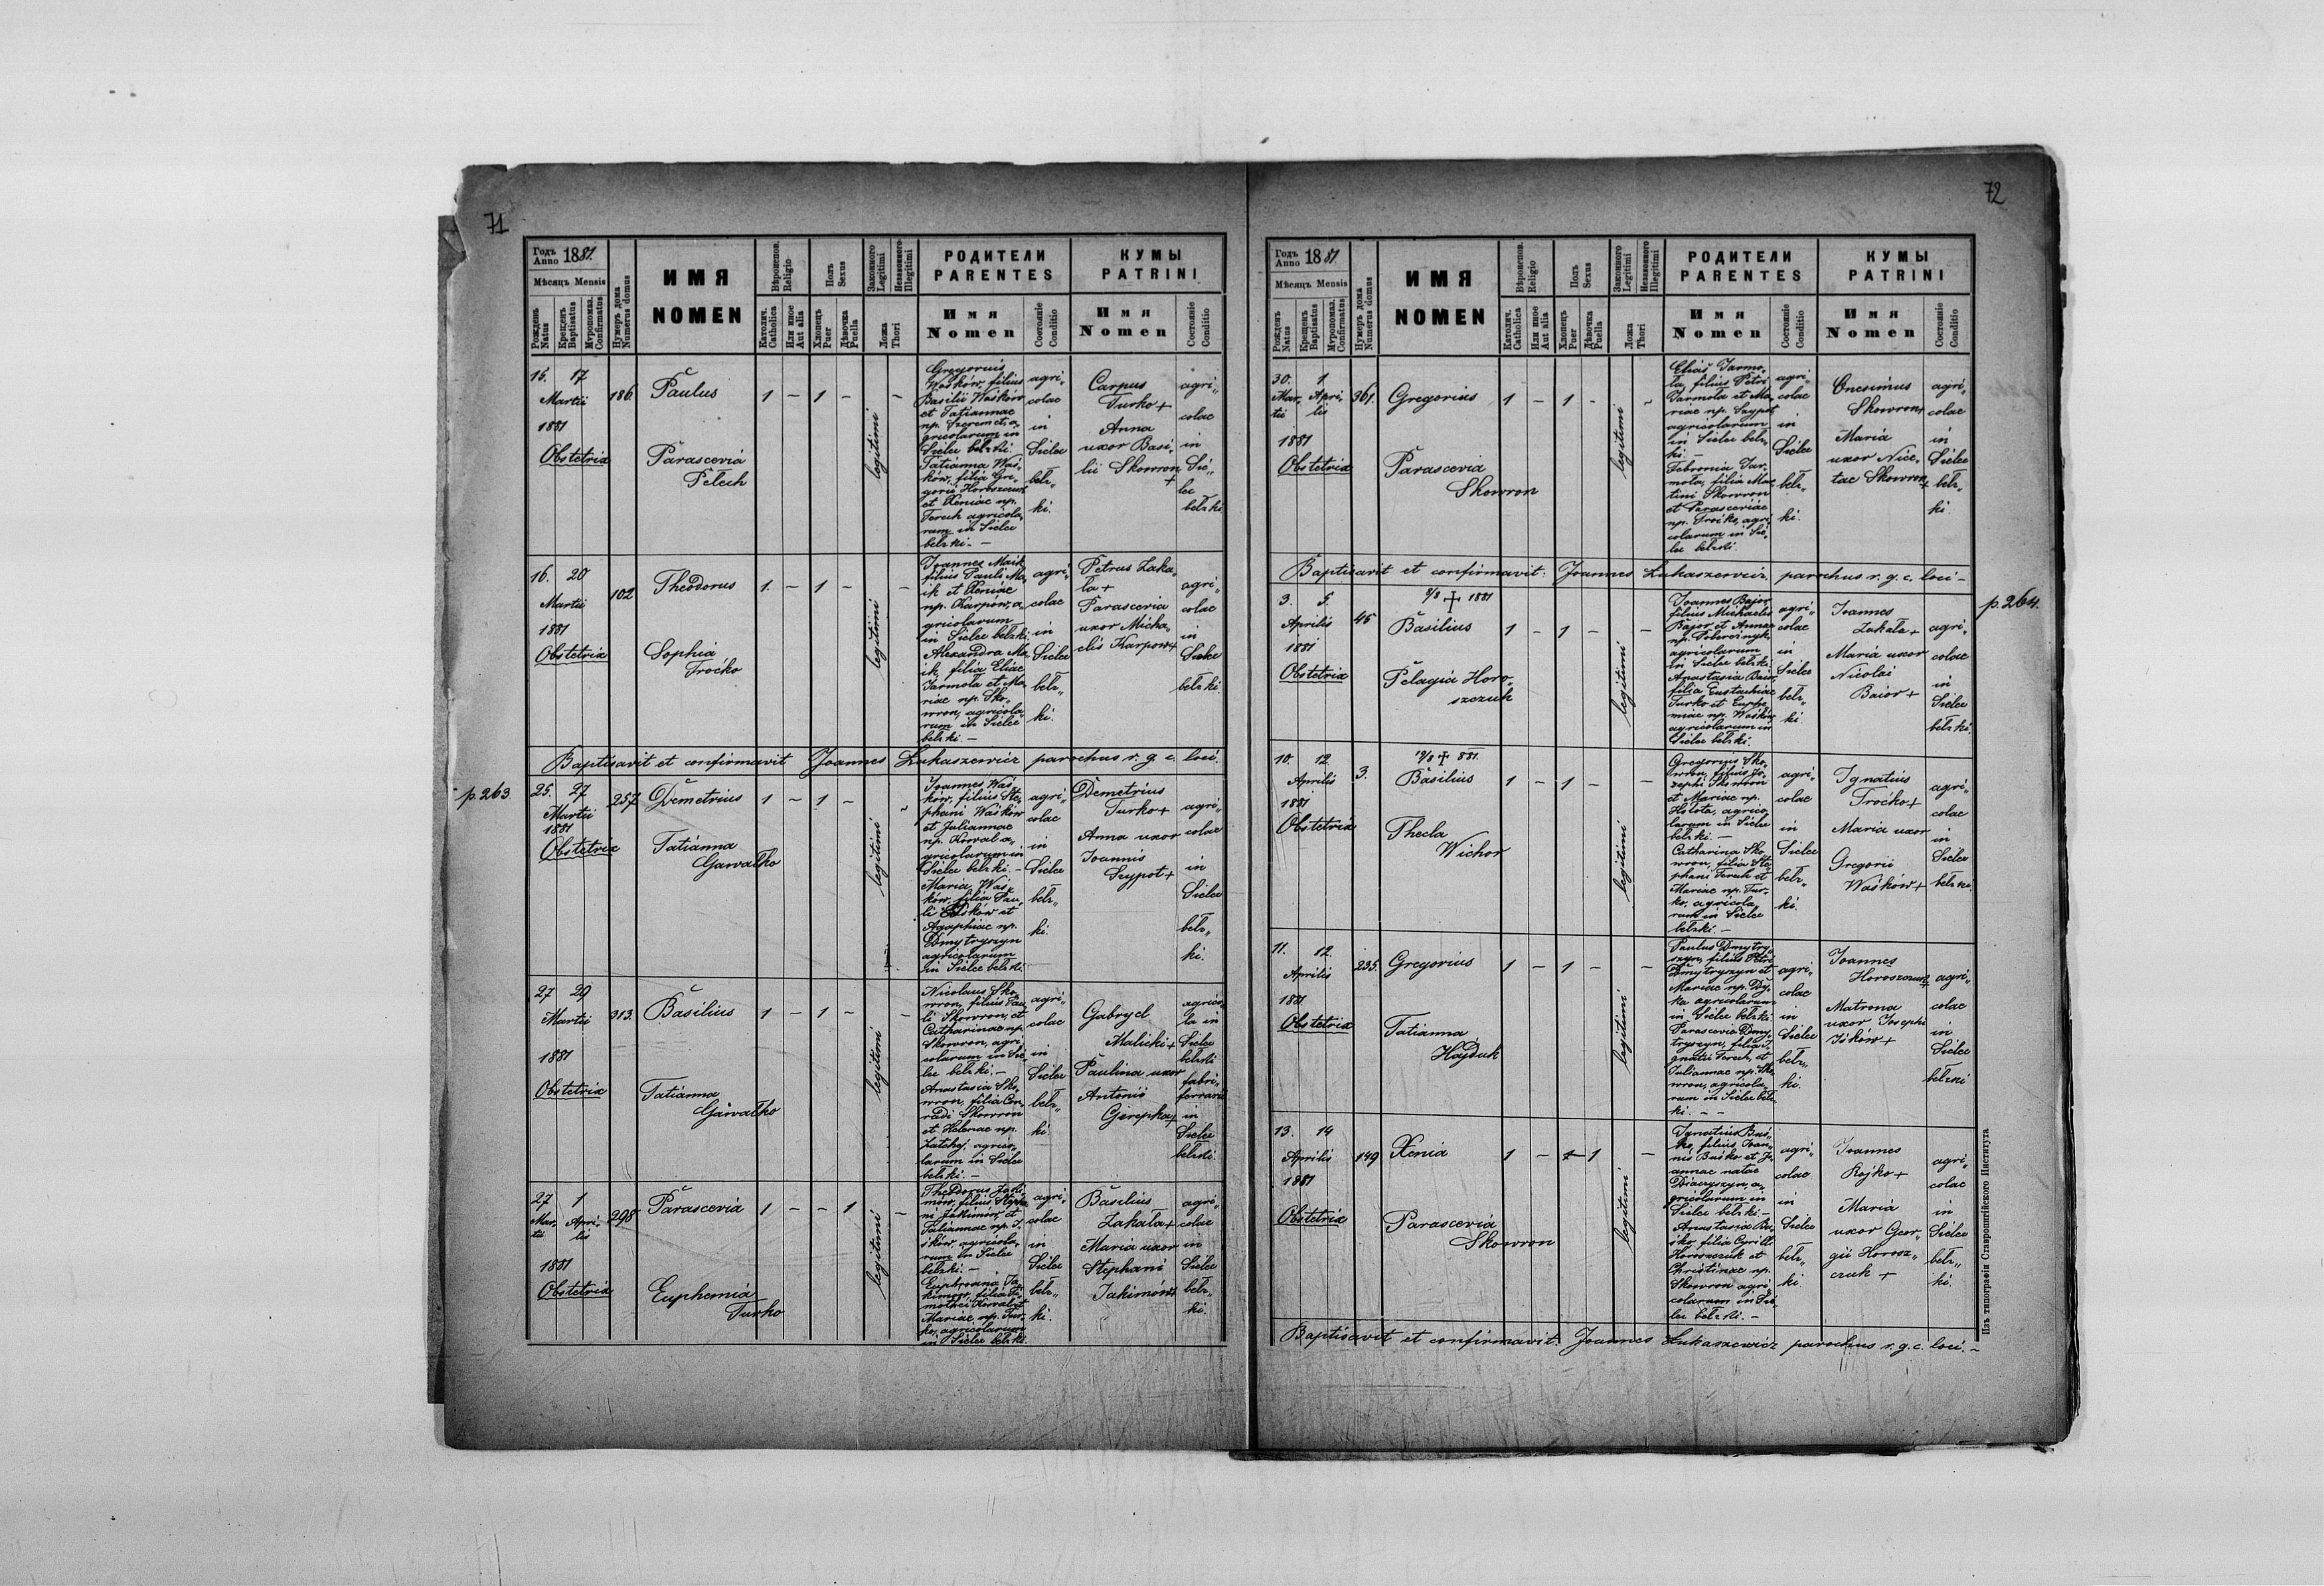 71
Годъ Anno 1881.
Мѣсяцъ Mensis
Рожденъ Natus
Крещенъ Baptisatus
Мѵропомаз. Confirmatus
Нумеръ дома Numerus domus
ИМЯ
NOMEN
Вѣроисповѣд. Religio
Католич. Catholica
Или иное Aut alia
Полъ Sexus
Хлопецъ Puer
Дѣвочка Puella
Законного Legitimi
Незаконного Illegitimi
Ложа Thori
РОДИТЕЛИ
PARENTES
Имя
Nomen
Состояніе Conditio
КУМЫ
PATRINI
Имя
Nomen
Состояніе Conditio
15. 17
Martii
1881
Obstetrix
186
Paulus
Parascevia
Pelech
1 – 1 – –
legitimi
Gregorius
Waśków, filius
Basilii Waśków
et Tatiannae
np. Szeremet, a-
gricolarum in
Sielec bełzki.
Tatianna Waś-
ków, filia Gre-
gorii Horoszczuk
et Xeniae np.
Feruh agricola-
rum in Sielec
bełzki. –
agri„
colae
in
Sielec
bełz„
ki.
Carpus
Turko +
Anna
uxor Basi-
lii Skowron
+
agri„
colae
in
Sie-
lec
bełzki
16. 20
Martii
1881
Obstetrix
102
Theodorus
Sophia
Troćko
1. – 1 – –
legitimi
Joannes Maik
filius Pauli Ma-
ik et Xeniae
np. Karpów, a-
gricolarum
in Sielec bełzki.
Alexandra Ma-
ik, filia Eliae
Jarmoła et Ma-
riae np. Sko-
wron, agricola-
rum in Sielec
bełzki. –
agri„
colae
in
Sielec
bełz„
ki.
Petrus Zaka-
ła +
Parascevia
uxor Micha-
elis Karpow +
agri„
colae
in
Sielec
bełzki
Baptisavit et confirmavit Joannes Łukaszewicz parochus r. g. c. loci.
p. 263
25. 27
Martii
1881
Obstetrix
257
Demetrius
Tatianna
Gawałko
1 – 1 – –
legitimi
Joannes Waś-
ków, filius Ste-
phani Waśków
et Juliannae
np. Kowal a-
gricolarum in
Sielec bełzki. –
Maria Waś-
ków, filia Pau-
li Waśków et
Agaphiae np.
Dmytryszyn
agricolarum
in Sielec bełzki.
agri„
colae
in
Sielec
bełz„
ki.
Demetrius
Turko +
Anna uxor
Joannis
Szypot +
agri„
colae
in
Sielec
bełz„
ki.
27 29
Martii
1881
Obstetrix
313.
Basilius
Tatianna
Gawałko
1 – 1 – –
legitimi
Nicolaus Sko-
wron, filius Pau-
li Skowron, et
Catharinae np.
Skowron, agri-
colarum in Sie-
lec bełzki. –
Anastasia Sko-
wron, filia Con-
radi Skowron
et Helenae np.
Zatchej, agrico-
larum in Sielec
bełzki. –
agri„
colae
in
Sielec
bełz„
ki
Gabryel
Malicki +
Paulina uxor
Antonii
Gerepka +
agrico-
la in
Sielec
bełzki
fabri-
ferrarii
in
Sielec
bełzki.
27 1
Mar- Apri-
tii lis
1881
Obstetrix
298
Parascevia
Euphemia
Turko
1 – – 1 –
legitimi
Theodorus Jaki-
mów, filius Stepha-
ni Jakimów, et
Juliannae np. I-
śków, agricola-
rum in Sielec
bełzki. –
Euphrosina Ja-
kimow, filia Ti-
mothei Kowal et
Mariae np. Tur-
ko, agricolarum
in Sielec bełzki.
agri„
colae
in
Sielec
bełz„
ki.
Basilius
Zakała +
Maria uxor
Stephani
Jakimów +
agri„
colae
in
Sielec
bełz„
ki.
72
Годъ Anno 1881
Мѣсяцъ Mensis
Рожденъ Natus
Крещенъ Baptisatus
Мѵропомаз. Confirmatus
Нумеръ дома Numerus domus
ИМЯ
NOMEN
Вѣроисповѣд. Religio
Католич. Catholica
Или иное Aut alia
Полъ Sexus
Хлопецъ Puer
Дѣвочка Puella
Законного Legitimi
Незаконного Illegitimi
Ложа Thori
РОДИТЕЛИ
PARENTES
Имя
Nomen
Состояніе Conditio
КУМЫ
PATRINI
Имя
Nomen
Состояніе Conditio
30. 1
Mar- Apri-
tii lis
1881
Obstetrix
361.
Gregorius
Parascevia
Skowron
1 – 1 – –
legitimi
Elias Jarmo-
ła, filius Petri
Jarmoła et Ma-
riae np. Szypot
agricolarum
in Sielec bełz-
ki. –
Febronia Jar-
moła, filia Mar-
tini Skowron
et Parasceviae
np. Troćko, agri-
colarum in Sie-
lec bełzki.
agri„
colae
in
Sielec
bełz„
ki.
Onesimus
Skowron +
Maria
uxor Nice-
tae Skowron +
agri„
colae
in
Sielec
bełz„
ki.
Baptisavit et confirmavit: Joannes Łukaszewicz, parochus r. g. c. loci –
p. 264.
3. 5.
Aprilis
1881
Obstetrix
45
9/8 + 1881
Basilius
Pelagia Horo-
szczuk
1 – 1 – –
legitimi
Joannes Bajor
filius Michaelis
Bajor et Annae
np. Poberežnyk,
agricolarum
in Sielec bełzki.
Anastasia Baior,
filia Eustachiae
Turko et Euphe-
miae np. Waśków
agricolarum in
Sielec bełzki.
agri„
colae
in
Sielec
bełz„
ki.
Joannes
Zakała +
Maria uxor
Nicolai
Baior +
agri„
colae
in
Sielec
bełzki.
10. 12.
Aprilis
1881
Obstetrix
3.
19/8 + 881.
Basilius
Thecla
Wichor
1 – 1 – –
legitimi
Gregorius Sko-
wron, filius Jo-
sephi Skowron
et Mariae np.
Hołota, agrico-
larum in Sielec
bełzki. –
Catharina Sko-
wron, filia Ste-
phani Feruh et
Mariae np. Tur-
ko, agricola-
rum in Sielec
bełzki. –
agri„
colae
in
Sielec
bełz„
ki.
Ignatius
Troćko +
Maria uxor
Gregorii
Waśków +
agri„
colae
in
Sielec
bełzki
11. 12.
Aprilis
1881
Obstetrix
235.
Gregorius
Tatianna
Hajduk
1 – 1 – –
legitimi
Paulus Dmytry-
szyn, filius Petri
Dmytryszyn et
Mariae np. Dy-
ka agricolarum
in Sielec bełzki.
Parascevia Dmy-
tryszyn, filia I-
gnatii Feruh, et
Juliannae np. Sko-
wron, agricola-
rum in Sielec bełz-
ki. – –
agri„
colae
in
Sielec
bełz„
ki.
Joannes
Horoszczuk +
Matrona
uxor Josephi
Iśków +
agri„
colae
in
Sielec
bełzki
13. 14
Aprilis
1881
Obstetrix
149
Xenia
Parascevia
Skowron
1 – 1 –
legitimi
Ignatius Buś-
ko, filius Joan-
nis Buśko et Jo-
annae natae
Diaczyszyn, a-
gricolarum in
Sielec bełzki. –
Anastasia Bu-
śko, filia Cyrilli
Horoszczuk et
Christinae np.
Skowron agri-
colarum in Sie-
lec bełzki. –
agri„
colae
in
Sielec
bełz„
ki
Joannes
Rojko +
Maria
uxor Geor-
gii Horosz-
czuk +
agri„
colae
in
Sielec
bełz„
ki.
Baptisavit et confirmavit: Joannes Łukaszewicz parochus r. g. c. loci. –
Изъ типографіи Ставропигійского Института